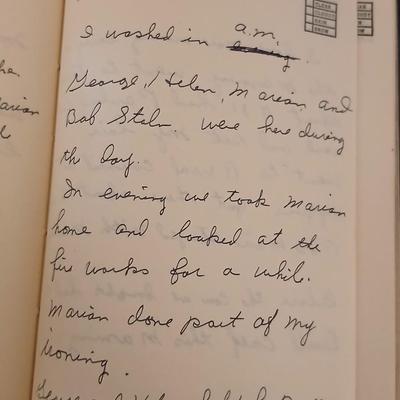 I washed in a.m.
George, Helen, Marian and
Bob Stehn. were here during
th day.
In evening we took Marian
home and looked at the
fire works for a while.
Marian done part of my
ironing.
George